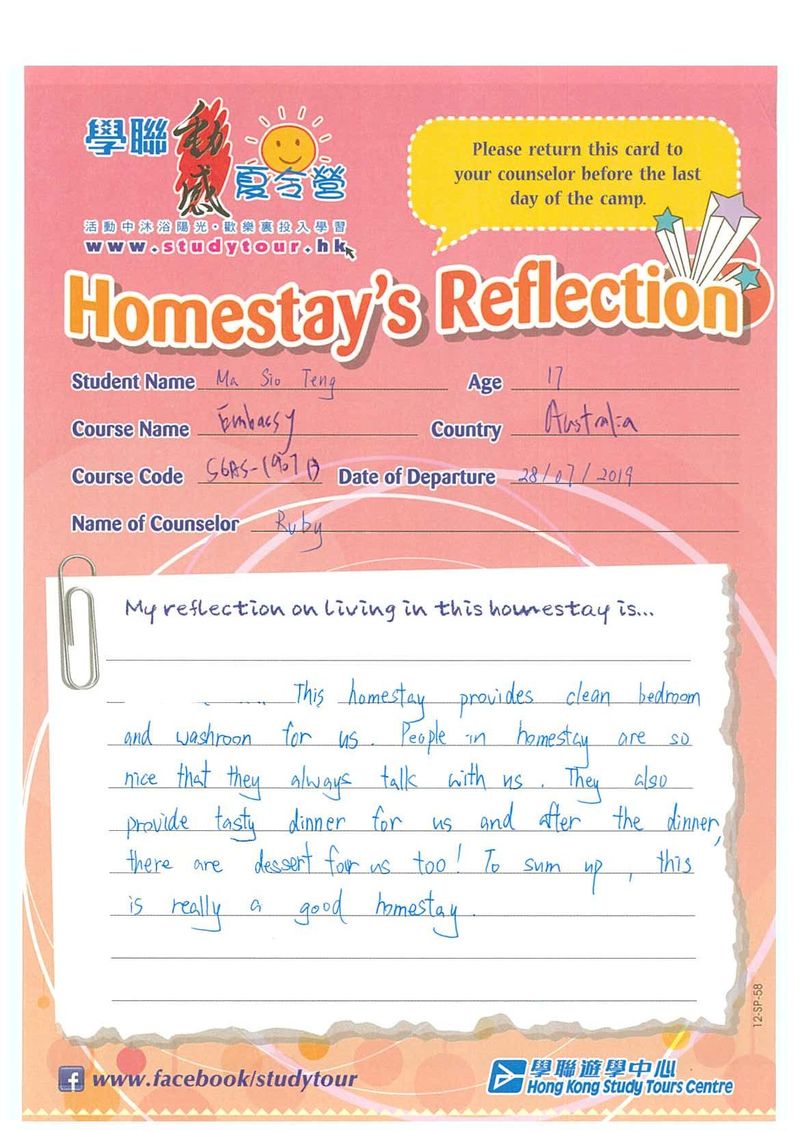 學聯 動感 夏令營
活動中沐浴陽光•歡樂裏投入學習
www.studytour.hk
Please return this card to
your counselor before the last
day of the camp.
Homestay's Reflection
Student Name Ma Sio Teng Age 17
Course Name Embassy Country Australia
Course Code Date of Departure 28/07/2019
Name of Counselor Ruby
My reflection on living in this homestay is...
This homestay provides clean bedroom
and washroon for us. People in homestay are so
nice that they always talk with us. They also
provide tasty dinner for us and after the dinner,
there are dessert for us too! To sum up, this
is really a good homestay.
12-SP-58
www.facebook/studytour
學聯遊學中心
Hong Kong Study Tours Centre